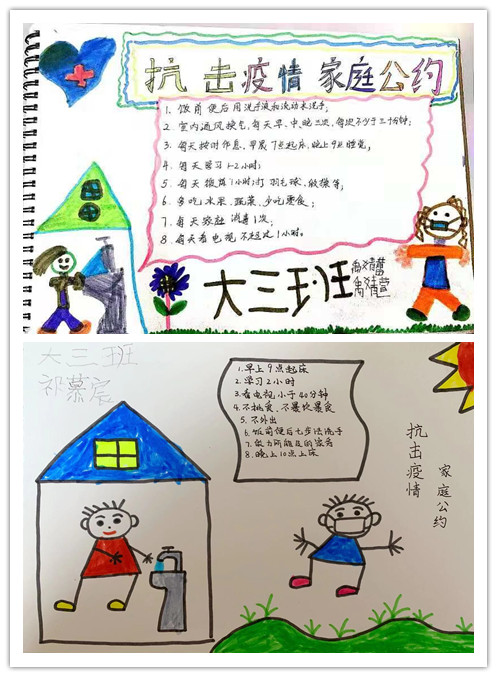 抗击疫情家庭公约
1、饭前便后用洗手液和流动水洗手;
2、室内通风换气,每天早、中、晚三次,每次不少于三十分钟;
3、每天按时作息,早晨7点起床,晚上9点睡觉;
4、每天学习1-2小时;
5、每天锻炼1小时:打羽毛球、做操等;
6、多吃水果、蔬菜,少吃零食;
7、每天家庭消毒1次;
8、每天看电视不超过1小时。
大三班
大三班
祁慕宸
1.早上9点起床
2.学习2小时
3.看电视小于40分钟
4.不挑食、不暴饮暴食
5.不外出
6.饭前便后七步法洗手
7.做力所能及的家务
8.晚上10点上床
抗击疫情
家庭公约